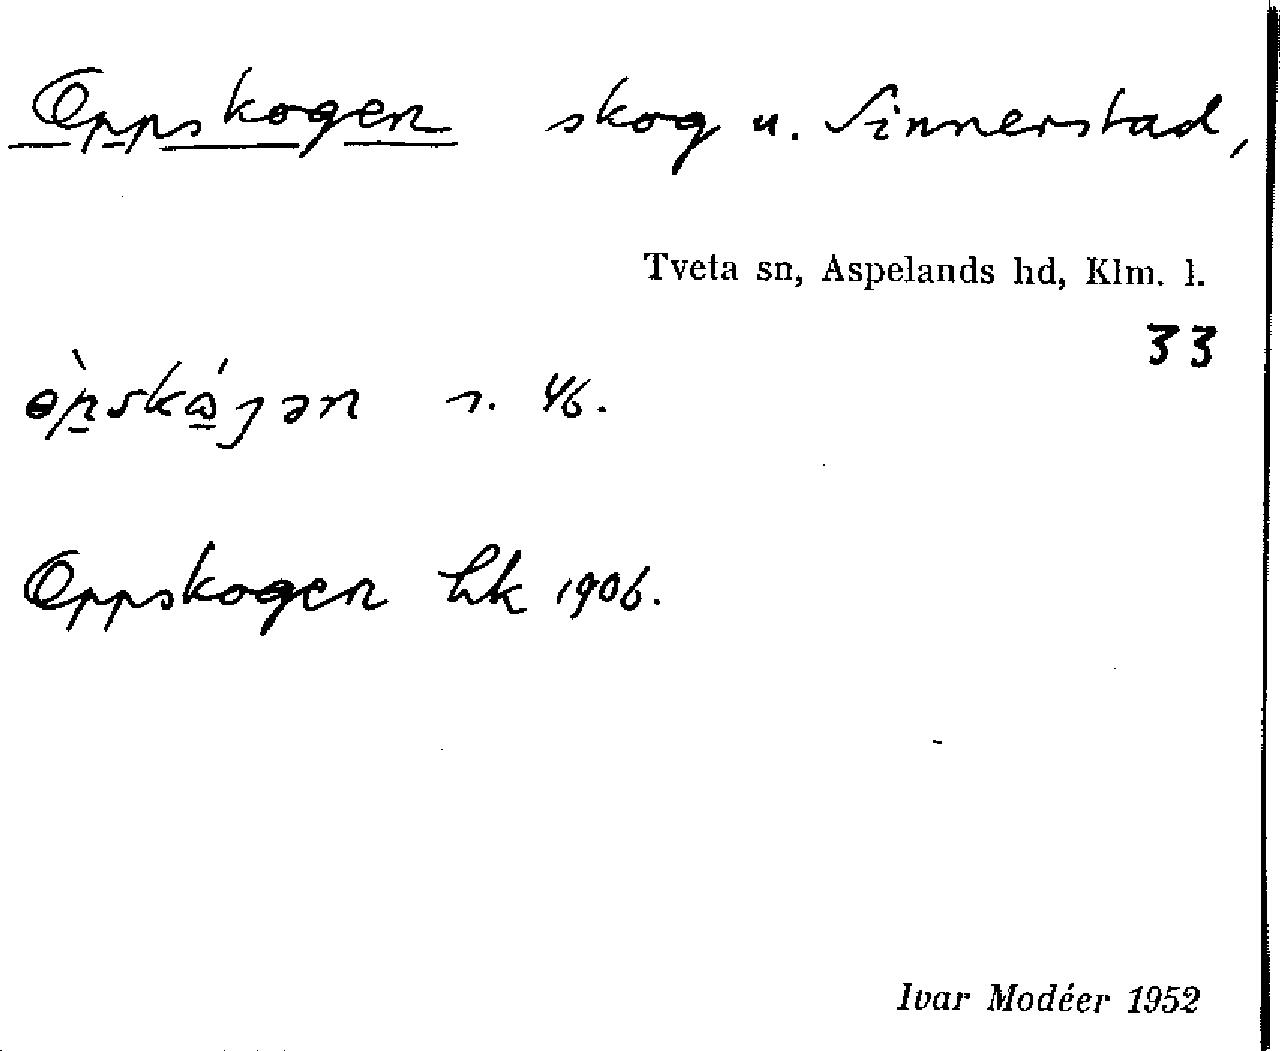 Oppskogen skog u. Sinnerstad,
Tveta sn, Aspelands hd, Klm. l.
33
s. 46.
Oppskogen hk 1906.
Ivar Modéer 1952